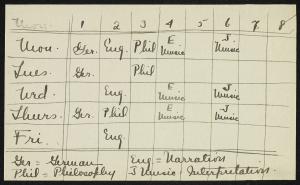 1 2 3 4 5 6 7 8
Mon. Ger. Eng. Phil E Music J Music
Tues. Ger. Phil
Wed. Eng. E Music J Music
Thurs. Ger. Phil E Music J Music
Fri. Eng.
Ger = German Eng = Narration
Phil = Philosophy J Music = Interpretation.